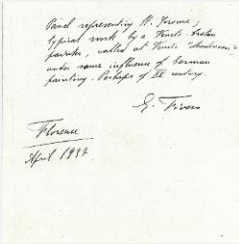 Panel representing St. Jerome;
typical work by a Veneto-Cretan
painter, called at Venice "Madonneri"
under some influence of German
painting. Perhaps of XV century.
G. Fiocco
Florence
April 1937